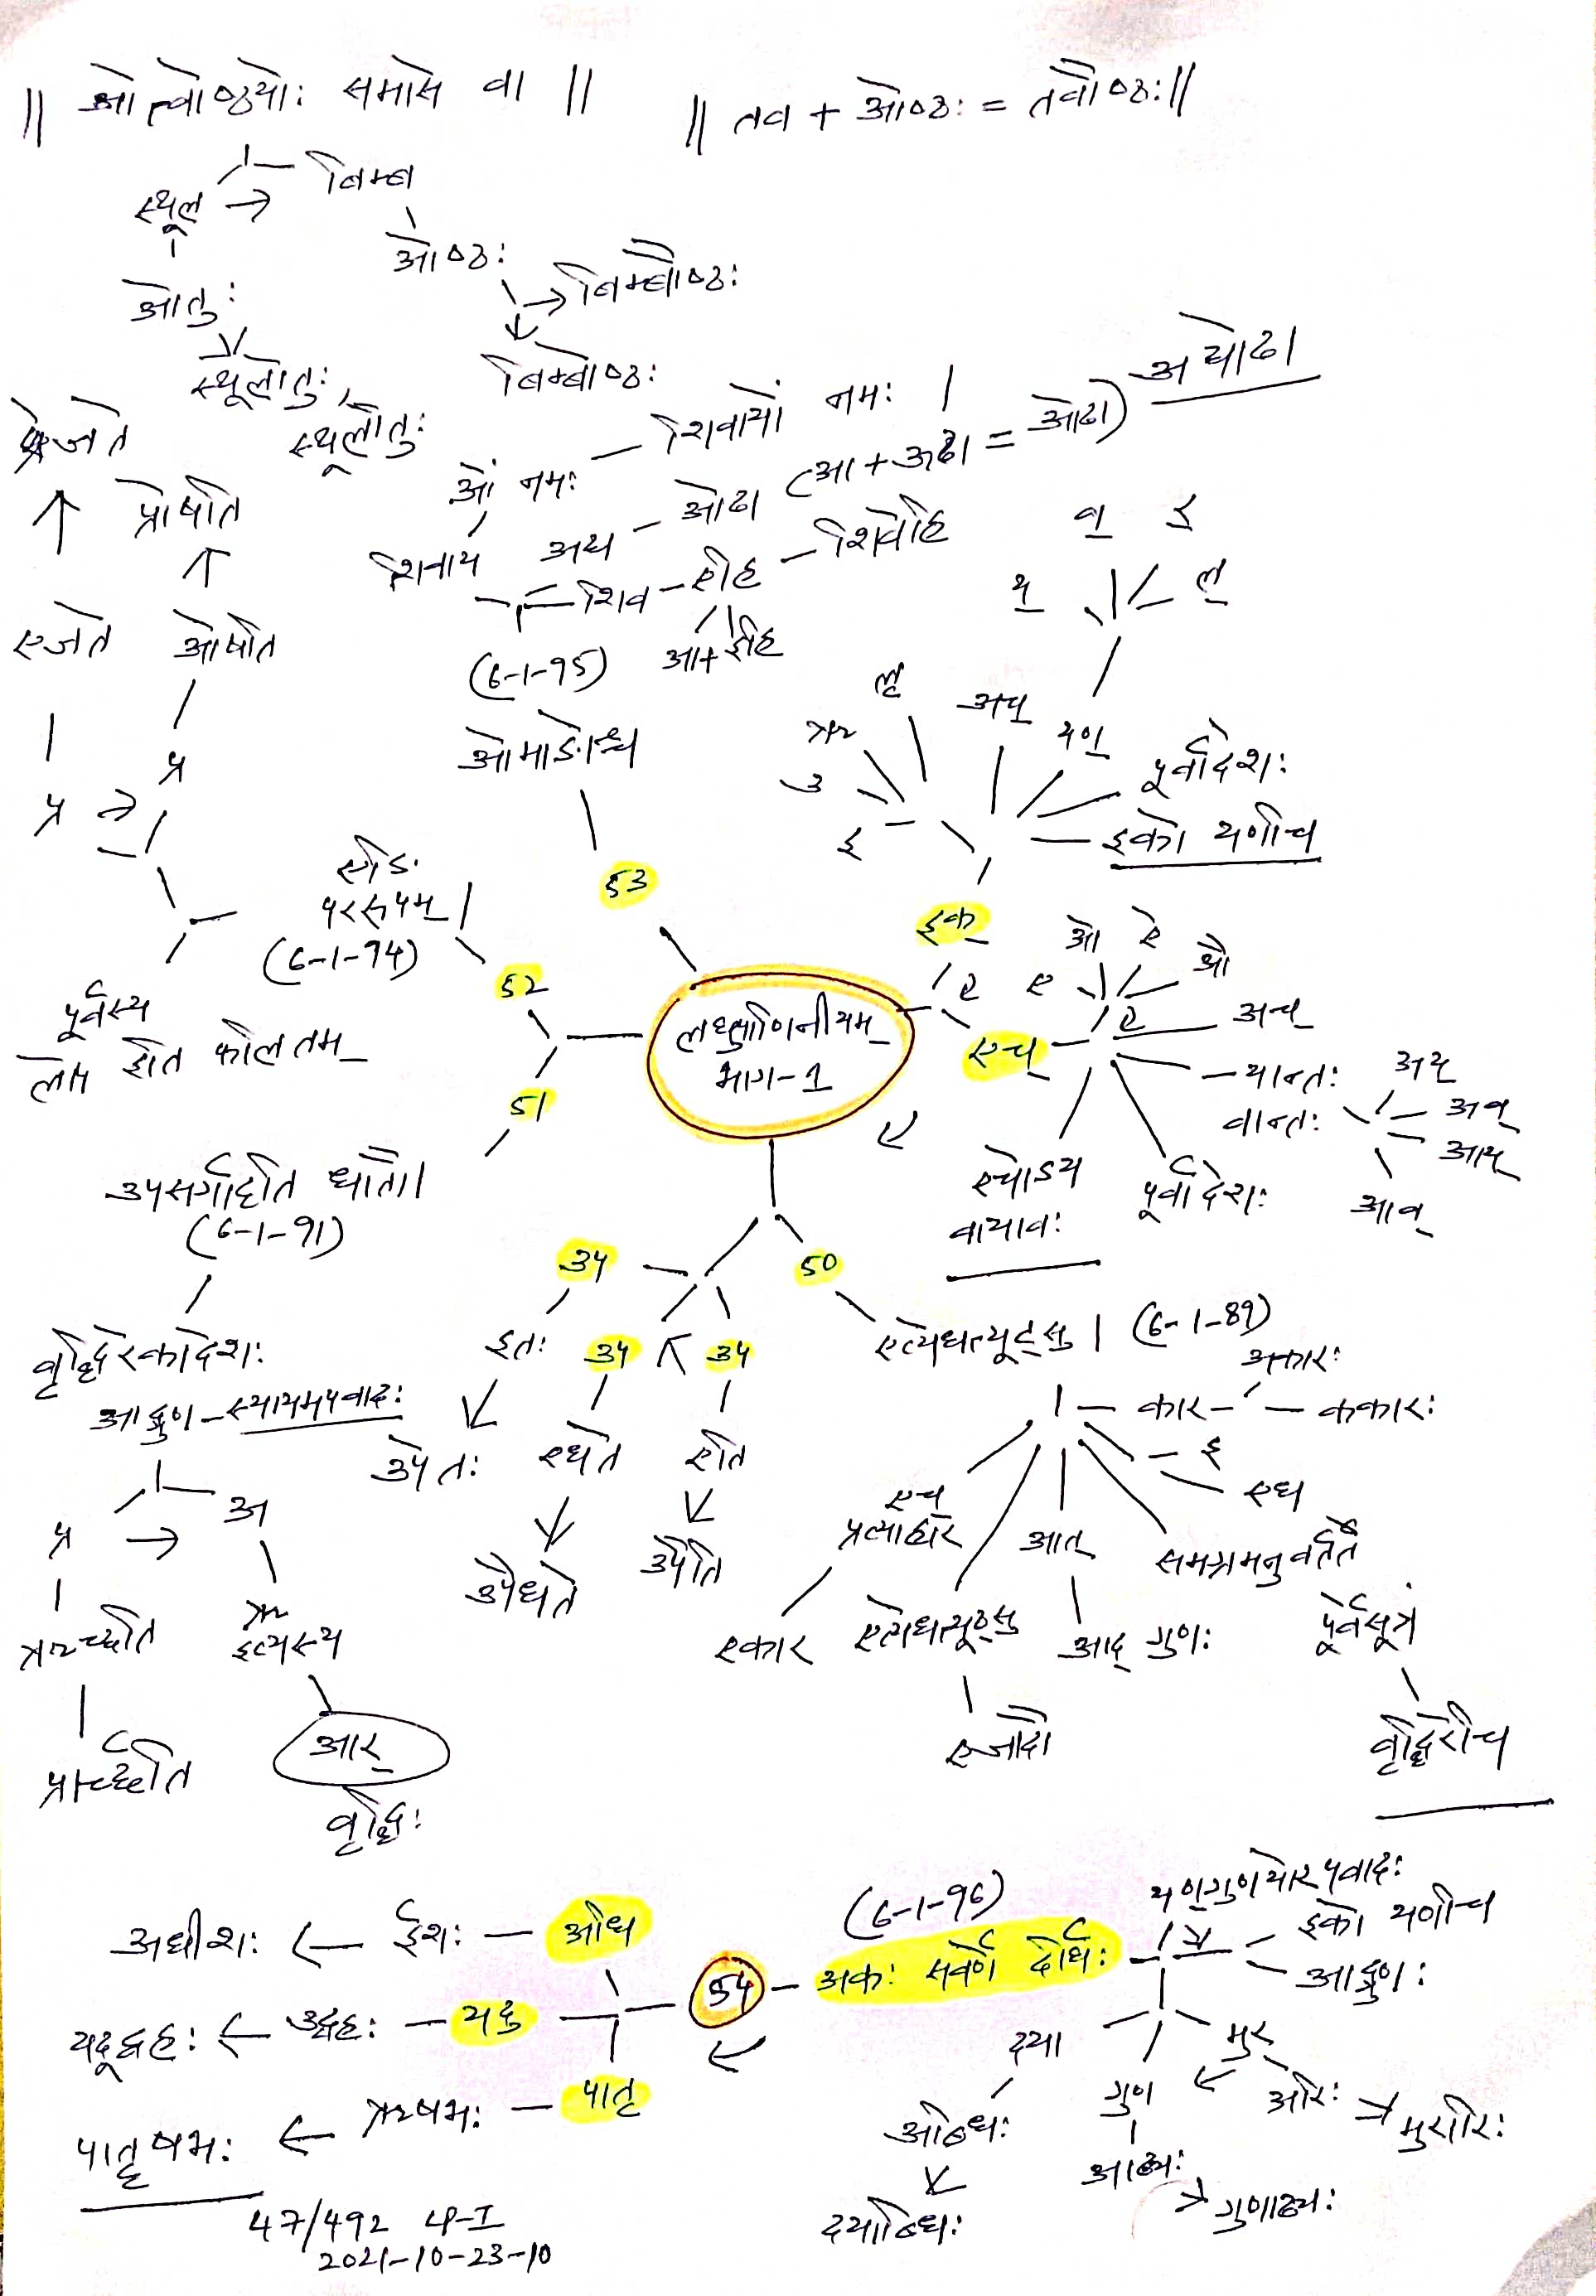 || ओत्वोष्ठयोः समासे वा ||
|| तव + ओष्ठः = तवौष्ठः ||
स्थूल → बिम्ब
ओतुः
ओष्ठः
→ बिम्बौष्ठः
बिम्बोष्ठः
स्थूलोतुः,
स्थूलौतुः
प्रेजते
↑
एजते
प्र
प्रोषति
↑
ओषति
प्र
ओं नमः — शिवायों नमः |
शिवाय
अद्य — ओढा (आ + ऊढा = ओढा) अद्योढा
शिव — एहि — शिवेहि
आ + इहि
(6-1-95)
ओमाङोश्च
53
एङि
पररूपम्
(6-1-94)
52
पूर्वस्य
लोप इति फलितम्
51
उपसर्गादृति धातौ।
(6-1-91)
वृद्धिरेकादेशः
आद्गुण-स्यायमपवादः
प्र → अ
ऋच्छति
प्रार्च्छति
ऋ
इत्यस्य
आर्
वृद्धिः
लघुपाणिनीयम्
भाग-1
इक्
इ
उ
ऋ
लृ
अच्
यण्
य्
व्
र्
ल्
पूर्वादेशः
इको यणचि
एच्
ए
ओ
ऐ
औ
अच्
यान्तः
वान्तः
अय्
अव्
आय्
आव्
पूर्वादेशः
एचोऽय
वायावः
34
इतः
उपेतः
34
एधते
उपैधते
34
एति
उपैति
50
एत्येधत्यूठ्सु | (6-1-89)
कार
अकारः
ककारः
इ
एध
समग्रमनुवर्तते
पूर्वसूत्रं
वृद्धिरेचि
आत्
आद् गुणः
एत्येधत्यूठ्सु
एजादौ
एच
प्रत्याहारे
एकार
(6-1-96)
54 — अकः सवर्णे दीर्घः
यण्गुणयोरपवादः
इको यणचि
आद्गुणः
अधीशः ← ईशः — अधि
यदूद्वहः ← उद्वहः — यदु
पातॄषभः ← ऋषभः — पातृ
दया
अब्धिः
दयाब्धिः
गुण
आढ्यः
→ गुणाढ्यः
मुर
अरिः → मुरारिः
47/492 LP-I
2021-10-23-10